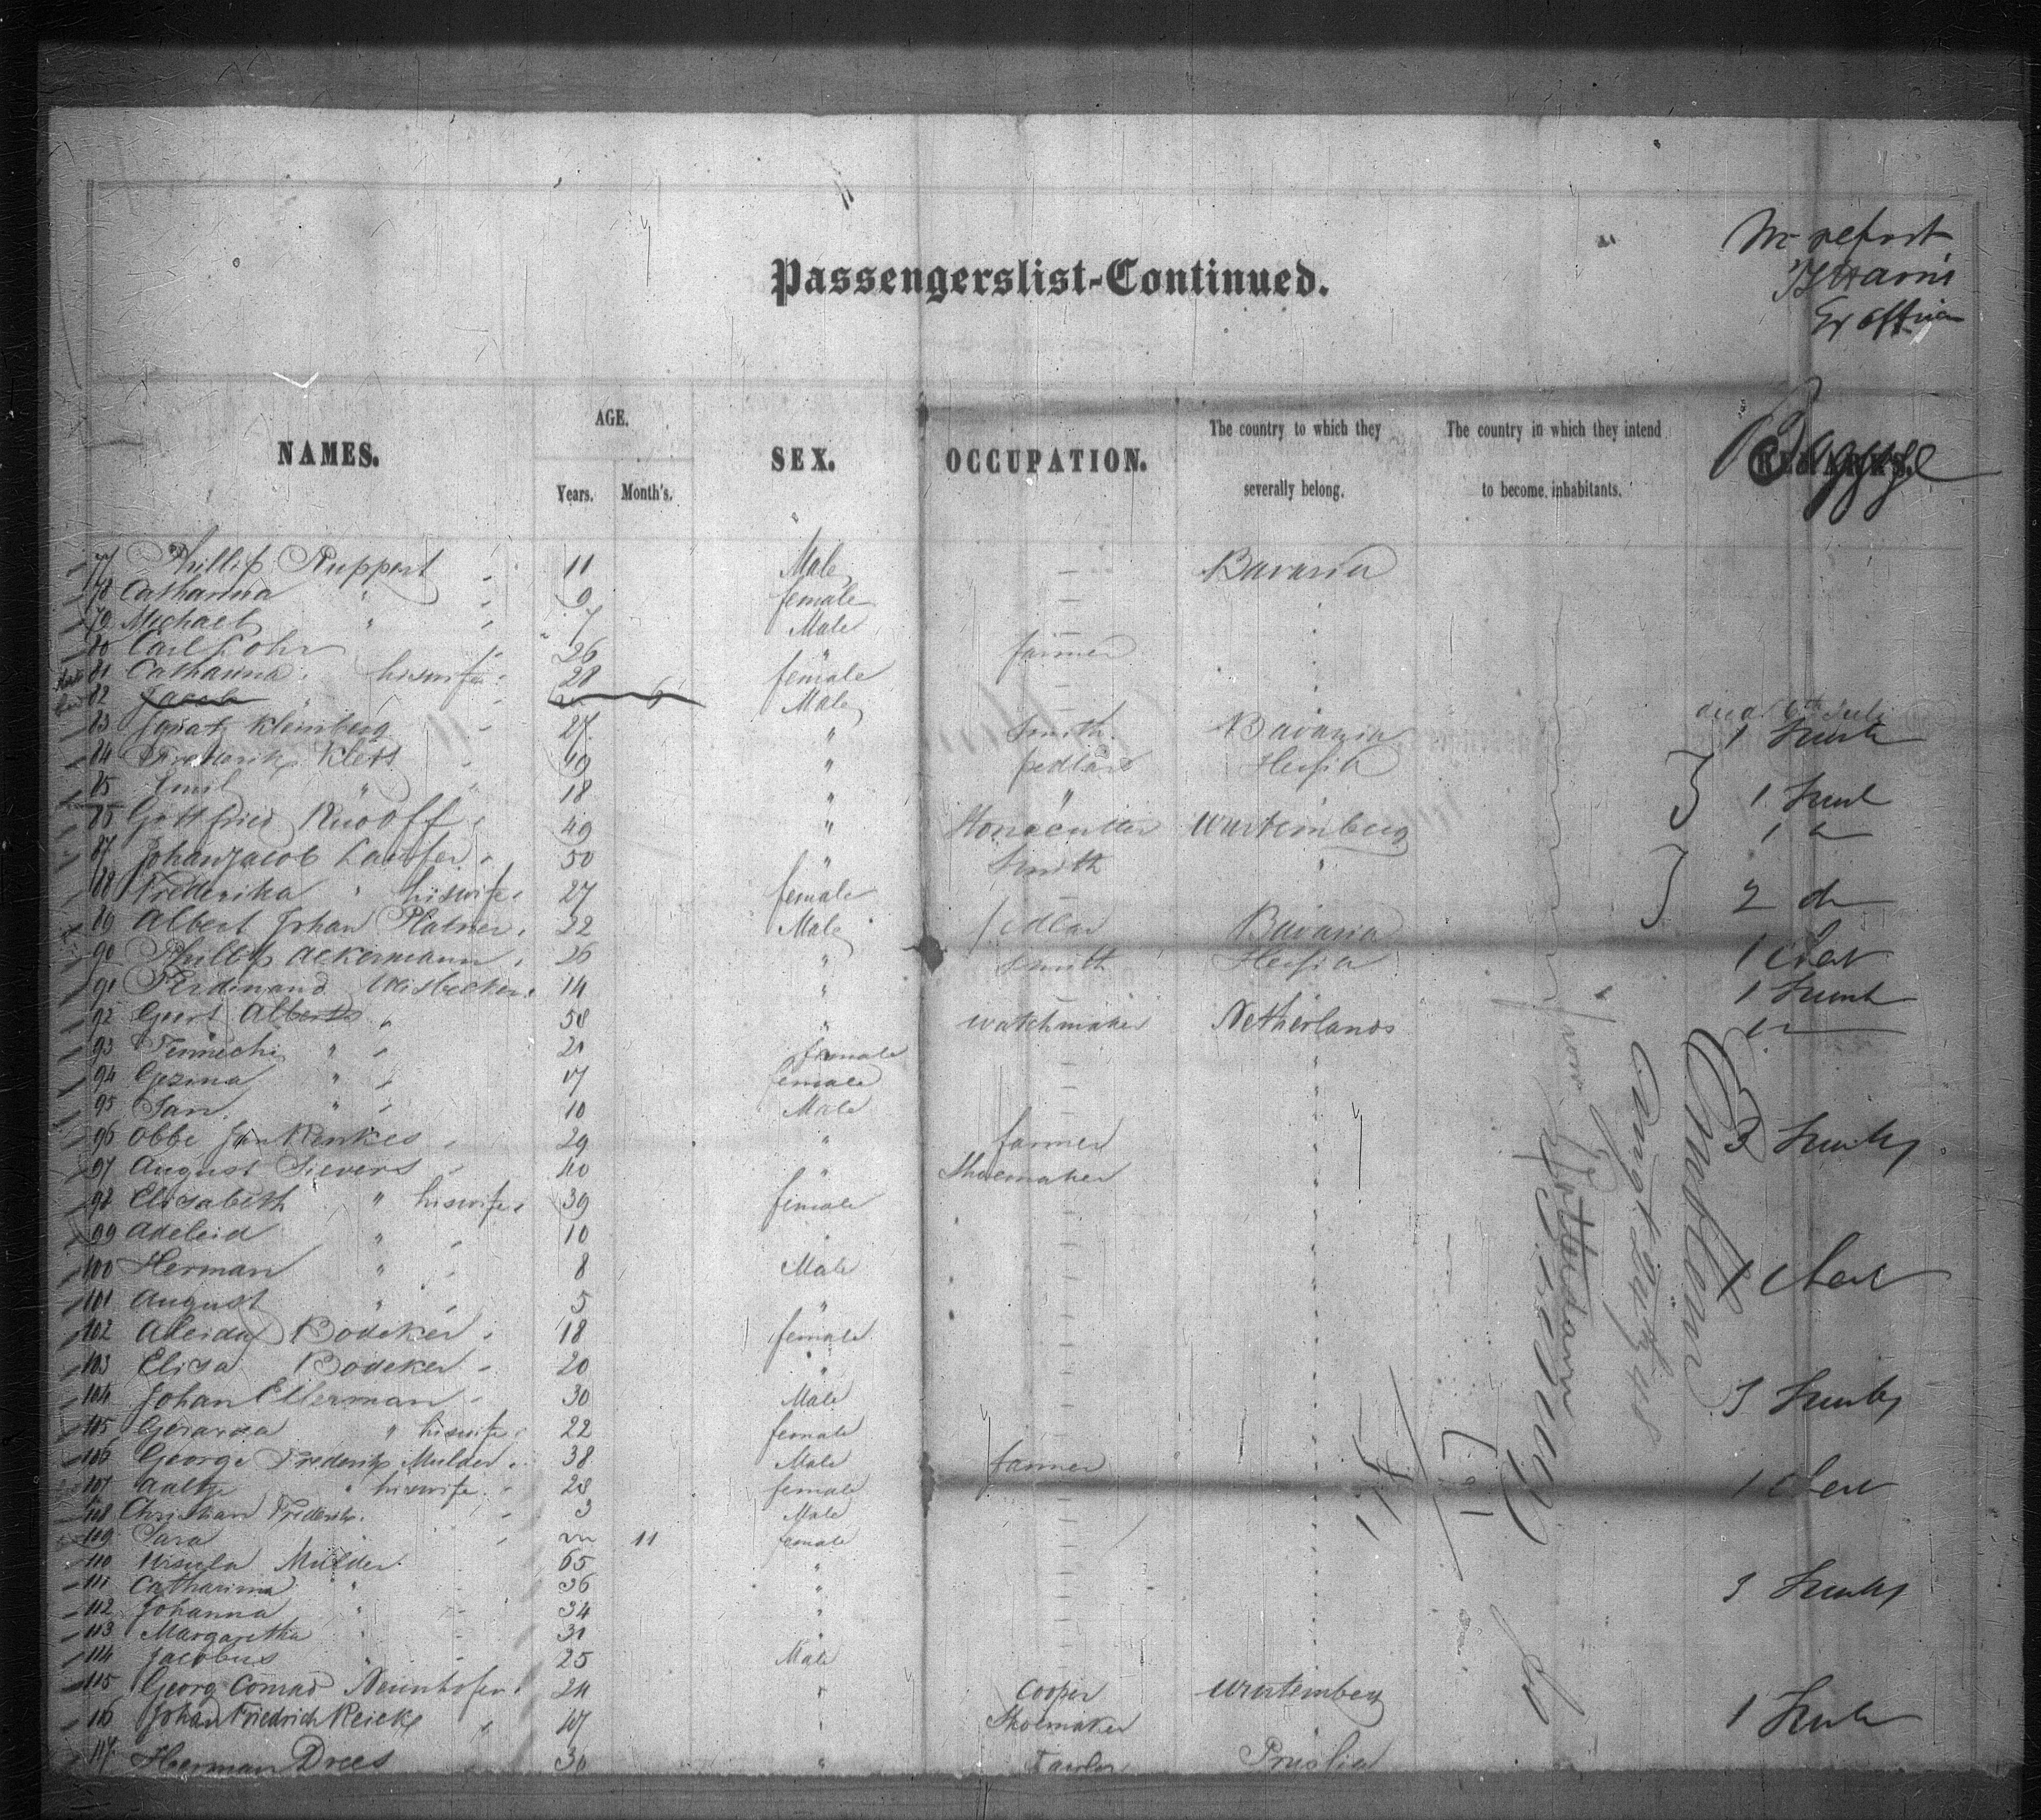 No report
Ex officer
Passengerslist-Continued.
NAMES. AGE. Years. Month's. SEX. OCCUPATION. The country to which they severally belong. The country in which they intend to become inhabitants. REMARKS. Baggage
77 Phillip Ruppert " 11 Male — Bavaria
78 Catharina " " 9 female —
79 Michael " " 7 Male —
80 Carl Lohr " 26 " farmer
81 Catharina " hiswife " 28 female —
82 Jacob " 6 Male — died 6th Juli
83 Ignatz Kleinberg " 27 " Smith Bavaria 1 Trunk
84 Frederik Klets " 49 " pedlars Hessia
85 Emil " " 18 " " 1 Trunk
86 Gottfried 49 " Stonecutter Wurtemberg 1 "
87 Johan Jacob 50 " Smith "
88 Frederika " hiswife " 27 female — 2 do
89 Albert Johan Platner " 22 Male pedlar Bavaria
90 Phillip Ackermann " 26 " Smith Hessia 1 Chest
91 Ferdinand Weisbecker " 14 " — 1 Trunk
92 Geert Alberts " 58 " watchmaker Netherlands
93 " " 21 female — "
94 Gezina " " 17 female — "
95 Jan " " 10 Male — "
96 Obbe Jan Renkes " 29 " farmer " 3 Trunks
97 August Sievers " 40 " Shoemaker "
98 Elisabeth " hiswife " 39 female — "
99 Adeleid " " 10 " — "
100 Herman " " 8 Male — " 1 Chest
101 August " " 5 " — "
102 Aleida Bodeker " 18 female — "
103 Elisa Bodeker " 20 " — "
104 Johan Ellerman " 30 Male — " 3 Trunks
105 Gerarda " hiswife " 22 female — "
106 George Frederik Mulder " 38 Male farmer "
107 Aaltje " hiswife " 28 female — " 1 Chest
108 Christian Frederik " 3 Male — "
109 Sara " 11 female — "
110 Ursula Mulder 65 " — "
111 Catharina " 36 " — " 3 Trunks
112 Johanna " 34 " — "
113 Margaretha " 31 " — "
114 Jacobus " 25 Male — "
115 Georg Conrad Neunhofer " 24 " Cooper Wurtemberg
116 Johan Friedrich Reicke " 47 " Shoemaker 1 Trunk
117 Herman Drees 30 " Tailor Prussia
from Rotterdam
August